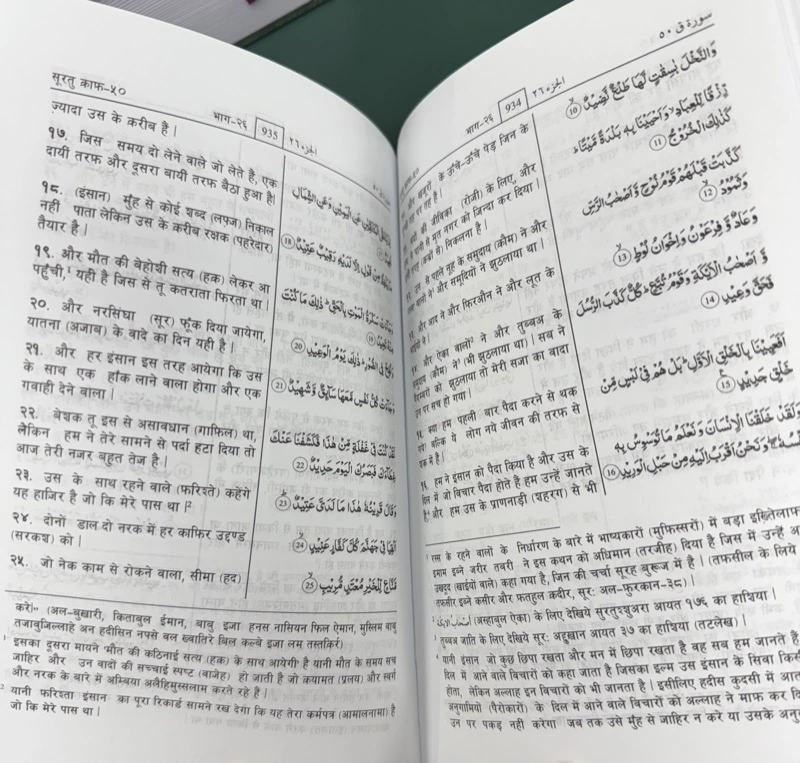 सूरतु क़ाफ़-५०
भाग-२६
935
الجزء ٢٦
ज़्यादा उस के क़रीब है |
१७. जिस समय दो लेने वाले जो लेते है, एक
दायी तरफ और दूसरा बायी तरफ बैठा हुआ है|
१८. (इंसान) मुँह से कोई शब्द (लफ़्ज) निकाल
नही पाता लेकिन उस के क़रीब रक्षक (पहरेदार)
तैयार है |
१९. और मौत की बेहोशी सत्य (हक़) लेकर आ
पहुँची,¹ यही है जिस से तू कतराता फिरता था |
२०. और नरसिंघा (सूर) फूंक दिया जायेगा,
यातना (अजाब) के वादे का दिन यही है |
२१. और हर इंसान इस तरह आयेगा कि उस
के साथ एक हाँक लाने वाला होगा और एक
गवाही देने वाला |
२२. बेशक तू इस से असावधान (ग़ाफ़िल) था,
लेकिन हम ने तेरे सामने से पर्दा हटा दिया तो
आज तेरी नजर बहुत तेज है |
२३. उस के साथ रहने वाले (फ़रिश्ते) कहेंगे
यह हाजिर है जो कि मेरे पास था |²
२४. दोनों डाल दो नरक में हर काफ़िर उद्दण्ड
(सरकश) को |
२५. जो नेक काम से रोकने वाला, सीमा (हद)
عَنِ الْيَمِيْنِ وَعَنِ الشِّمَالِ
مِنْ قَوْلٍ اِلَّا لَدَيْهِ رَقِيْبٌ عَتِيْدٌ 18
سَكْرَةُ الْمَوْتِ بِالْحَقِّ ذٰلِكَ مَا كُنْتَ
19
ذٰلِكَ يَوْمُ الْوَعِيْدِ 20
كُلُّ نَفْسٍ مَّعَهَا سَآئِقٌ وَّشَهِيْدٌ 21
لَقَدْ كُنْتَ فِيْ غَفْلَةٍ مِّنْ هٰذَا فَكَشَفْنَا عَنْكَ
غِطَآءَكَ فَبَصَرُكَ الْيَوْمَ حَدِيْدٌ 22
وَقَالَ قَرِيْنُهٗ هٰذَا مَا لَدَيَّ عَتِيْدٌ 23
اَلْقِيَا فِيْ جَهَنَّمَ كُلَّ كَفَّارٍ عَنِيْدٍ 24
مَّنَّاعٍ لِّلْخَيْرِ مُعْتَدٍ مُّرِيْبٍ 25
करे|" (अल-बुखारी, किताबुल ईमान, बाबु इजा हनस नासियन फिल ऐमान, मुस्लिम बाबु
तजावुजिल्लाहे अन हदीसिन नफ्से वल ख्वातिरे बिल कल्बे इजा लम तस्तकिर)
¹ इसका दूसरा मायने 'मौत की कठिनाई सत्य (हक़) के साथ आयेगी' है यानी मौत के समय सच
जाहिर और उन वादों की सच्चाई स्पष्ट (वाजेह) हो जाती है जो कयामत (प्रलय) और स्वर्ग
और नरक के बारे में अम्बिया अलैहिमुस्सलाम करते रहे है |
² यानी फरिश्ता इंसान का पूरा रिकार्ड सामने रख देगा कि यह तेरा कर्मपत्र (आमालनामा) है
जो कि मेरे पास था |
भाग-२६
934
الجزء ٢٦
سورة ق ٥٠
खजूरों के ऊँचे-ऊँचे पेड़ जिन के
की जीविका (रोजी) के लिए, और
पानी से मृत नगर को जिन्दा कर दिया |
(कब्रों से) निकलना है |
से पहले नूह के समुदाय (कौम) ने और
वालों ने¹ और समूदियों ने झुठलाया था |
और आद ने और फिरऔन ने और लूत के
और ऐका वालों² ने और तुब्बअ के
समुदाय (कौम) ने³ भी झुठलाया था | सब ने
को झुठलाया तो मेरी सजा का वादा
उन पर सच हो गया |
क्या हम पहली बार पैदा करने से थक
गये? बल्कि ये लोग नये जीवन की तरफ से
शक में है |
१६. हम ने इंसान को पैदा किया है और उस के
दिल में जो विचार पैदा होते हैं हम उन्हें जानते
हैं⁴ और हम उस के प्राणनाड़ी (शहरग) से भी
وَالنَّخْلَ بٰسِقٰتٍ لَّهَا طَلْعٌ نَّضِيْدٌ 10
رِّزْقًا لِّلْعِبَادِ وَاَحْيَيْنَا بِهٖ بَلْدَةً مَّيْتًا
كَذٰلِكَ الْخُرُوْجُ 11
كَذَّبَتْ قَبْلَهُمْ قَوْمُ نُوْحٍ وَّاَصْحٰبُ الرَّسِّ
وَثَمُوْدُ 12
وَعَادٌ وَّفِرْعَوْنُ وَاِخْوَانُ لُوْطٍ 13
وَّاَصْحٰبُ الْاَيْكَةِ وَقَوْمُ تُبَّعٍ كُلٌّ كَذَّبَ الرُّسُلَ
فَحَقَّ وَعِيْدِ 14
اَفَعَيِيْنَا بِالْخَلْقِ الْاَوَّلِ بَلْ هُمْ فِيْ لَبْسٍ مِّنْ
خَلْقٍ جَدِيْدٍ 15
وَلَقَدْ خَلَقْنَا الْاِنْسَانَ وَنَعْلَمُ مَا تُوَسْوِسُ بِهٖ
نَفْسُهٗ وَنَحْنُ اَقْرَبُ اِلَيْهِ مِنْ حَبْلِ الْوَرِيْدِ 16
¹ रस्स के रहने वालों के निर्धारण के बारे में भाष्यकारों (मुफस्सिरों) में बड़ा इख्तिलाफ
इमाम इब्ने जरीर तबरी ने इस कथन को अधिमान (तरजीह) दिया है जिस में उन्हें अ
उखदूद (खाईयों वाले) कहा गया है, जिन की चर्चा सूरह बुरूज में है | (तफसील के लिये
तफसीर इब्ने कसीर और फतहुल कदीर, सूर: अल-फुरकान-३८) |
² اَصْحٰبُ الْاَيْكَةِ (अस्हाबुल ऐका) के लिए देखिये सूरतुश्शुअरा आयत १७६ का हाशिया |
³ तुब्बअ जाति के लिए देखिये सूर: अद्दुखान आयत ३७ का हाशिया (तटलेख) |
⁴ यानी इंसान जो कुछ छिपा रखता और मन में छिपा रखता है वह सब हम जानते हैं
दिल में आने वाले विचारों को कहा जाता है जिसका इल्म उस इंसान के सिवा किसी
होता, लेकिन अल्लाह इन विचारों को भी जानता है | इसीलिए हदीस कुदसी में आत
अनुगामियों (पैरोकारों) के दिल में आने वाले विचारों को अल्लाह ने माफ कर दि
उन पर पकड़ नही करेगा जब तक उसे मुँह से जाहिर न करे या उसके अनु